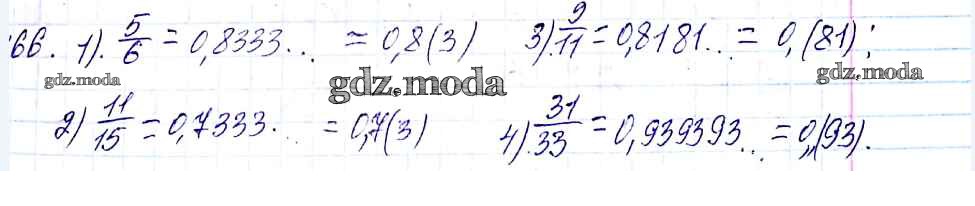 66. 1). 5/6 = 0,8333.. = 0,8(3) 3) 9/11 = 0,8181.. = 0,(81);
gdz.moda
gdz.moda
gdz.moda
2) 11/15 = 0,7333.. = 0,7(3) 4). 31/33 = 0,939393... = 0,(93).